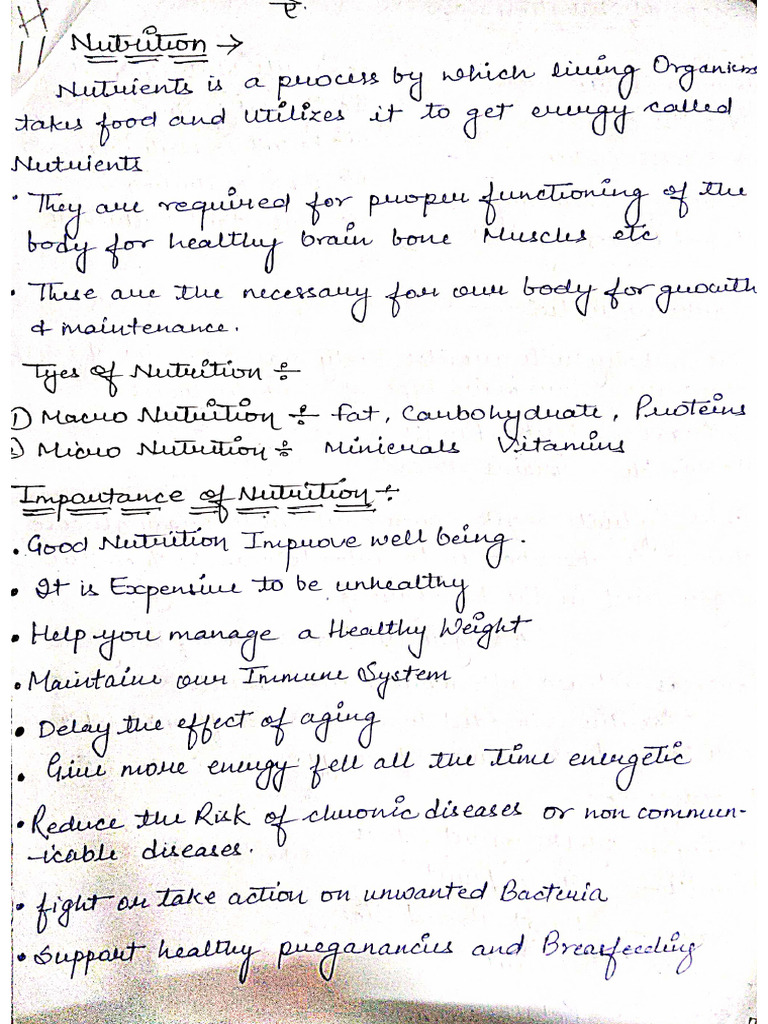 ए.
Nutrition →
Nutrients is a process by which living Organism
takes food and utilizes it to get energy called
Nutrients
• They are required for proper functioning of the
body for healthy brain bone Muscles etc
• These are the necessary for our body for growth
& maintenance.
Tyes of Nutrition ÷
1) Macro Nutrition ÷ fat, Carbohydrate, Proteins
2) Micro Nutrition ÷ Minierals Vitamins
Importance of Nutrition ÷
• Good Nutrition Improve well being.
• It is Expensive to be unhealthy
• Help you manage a Healthy Weight
• Maintaine our Immune System
• Delay the effect of aging
• Give more energy fell all the time energetic
• Reduce the Risk of chronic diseases or non commun-
-icable diseases.
• fight or take action on unwanted Bacteria
• Support healthy preganancies and Breasfeeding